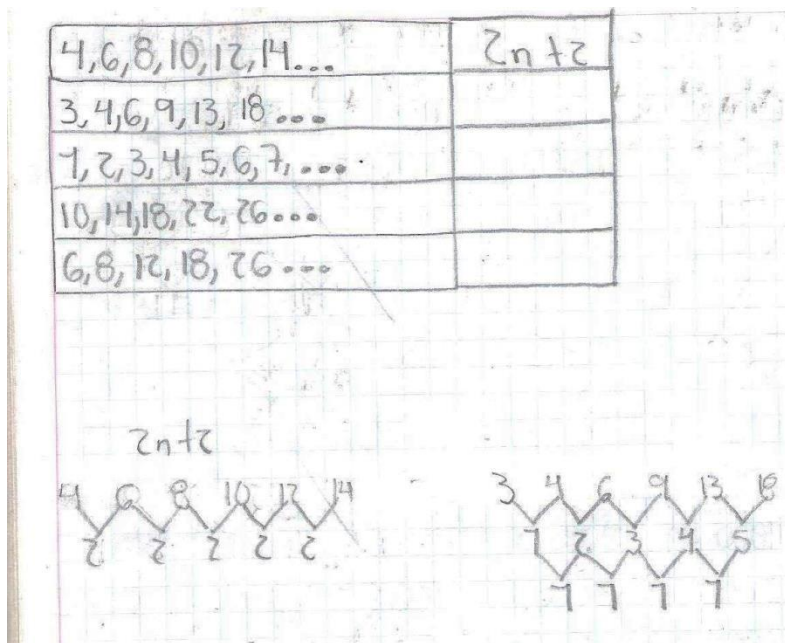 4,6,8,10,12,14...
2n+2
3,4,6,9,13,18...
1,2,3,4,5,6,7,...
10,14,18,22,26...
6,8,12,18,26...
2n+2
4 6 8 10 12 14
2 2 2 2 2
3 4 6 9 13 18
1 2 3 4 5
1 1 1 1